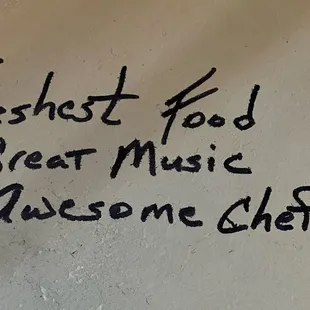 eshest Food
Great Music
Awesome Chef